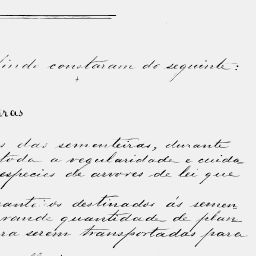 findo constaram do seguinte:
ras
s das sementeiras, durante
toda a regularidade e cuida
especies de arvores de lei que
canteiros destinados ás semen
grande quantidade de plan
ra serem transportadas para